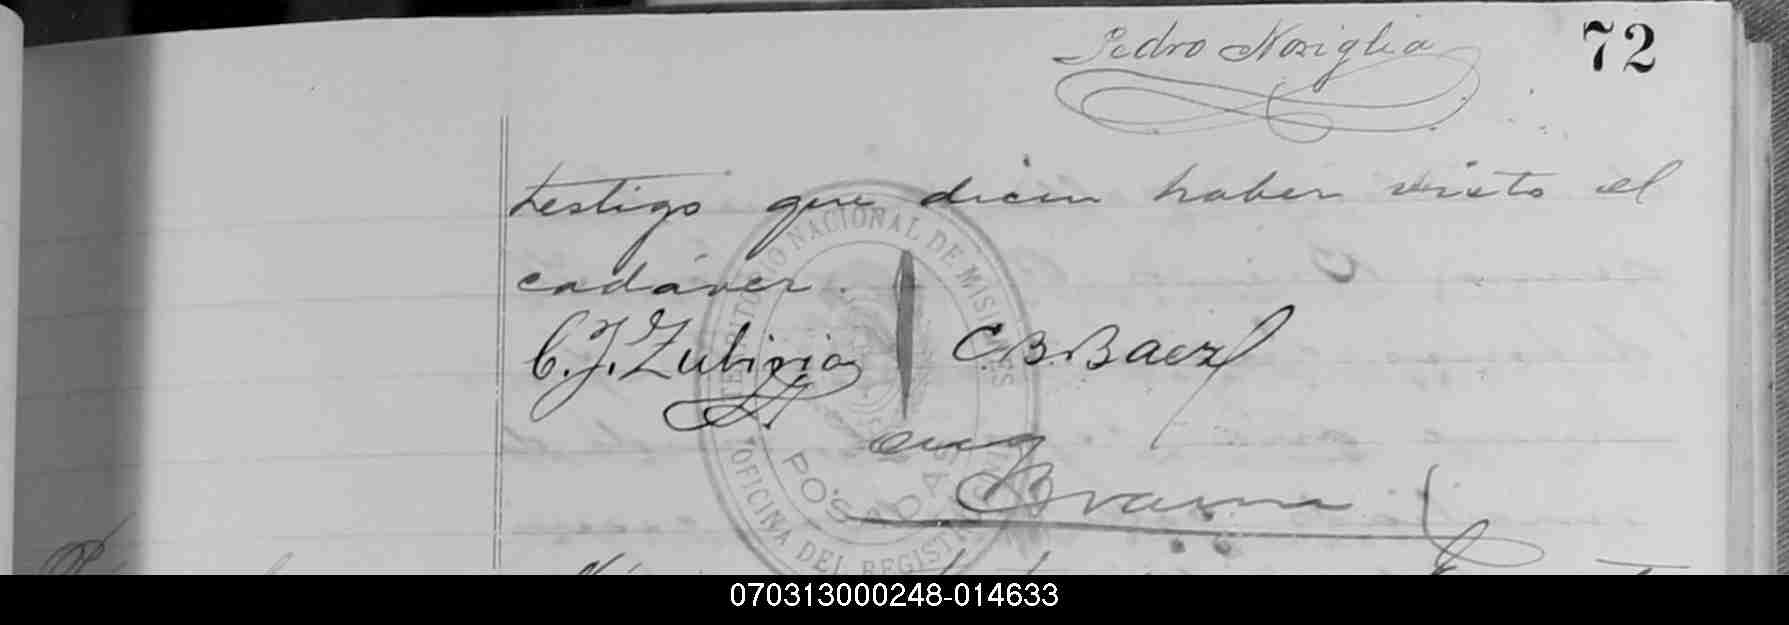 Pedro Noziglia
72
testigo que dicen haber visto el
cadáver.
C. J. Zubizia C. B. Baez
TERRITORIO NACIONAL DE MISIONES
POSADAS
OFICINA DEL REGISTRO
070313000248-014633